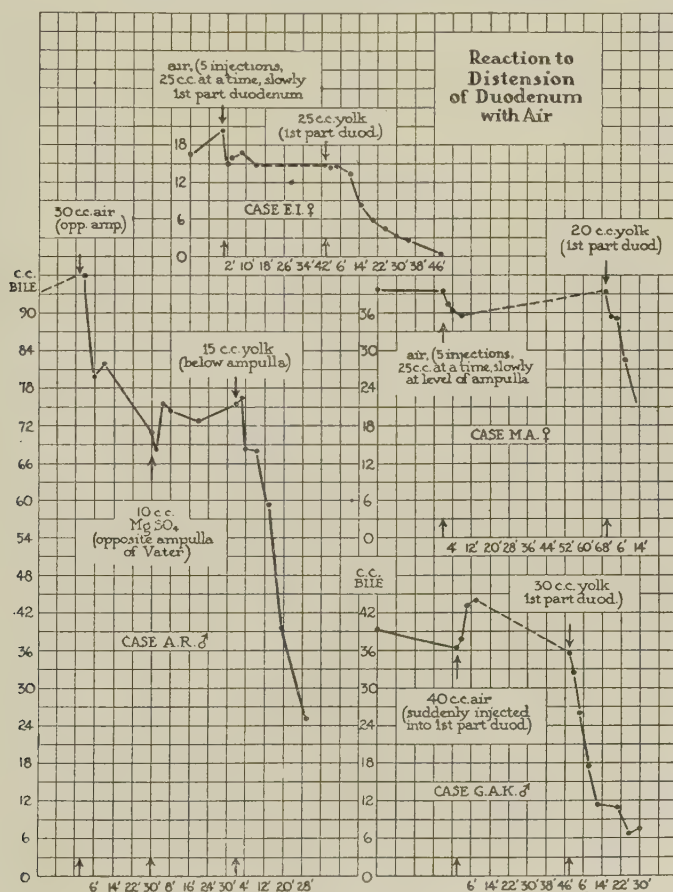 Reaction to
Distension
of Duodenum
with Air
air, (5 injections,
25 c.c. at a time, slowly
1st part duodenum
25 c.c. yolk
(1st part duod.)
18
12
6
0
CASE E.I. ♀
2' 10' 18' 26' 34' 42' 6' 14' 22' 30' 38' 46'
30 c.c. air
(opp. amp.)
C.C.
BILE
90
84
78
72
66
60
54
48
42
36
30
24
18
12
6
0
15 c.c. yolk
(below ampulla)
10 c.c.
MgSO₄
(opposite ampulla
of Vater)
CASE A.R. ♂
6' 14' 22' 30' 8' 16' 24' 30' 4' 12' 20' 28'
20 c.c. yolk
(1st part duod.)
36
30
24
18
12
6
0
air, (5 injections,
25 c.c. at a time, slowly
at level of ampulla
CASE M.A. ♀
4' 12' 20' 28' 36' 44' 52' 60' 68' 6' 14'
C.C.
BILE
42
36
30
24
18
12
6
0
30 c.c. yolk
1st part duod.)
40 c.c. air
(suddenly injected
into 1st part duod.)
CASE G.A.K. ♂
6' 14' 22' 30' 38' 46' 6' 14' 22' 30'